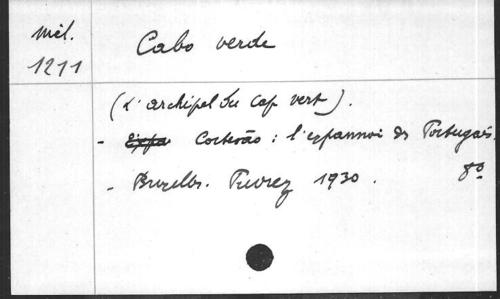 Mél.
1211
Cabo verde
(L'archipel du Cap vert).
- Cortesão : l'expansion des Portugais.
- Bruxelles. 1930. 8º